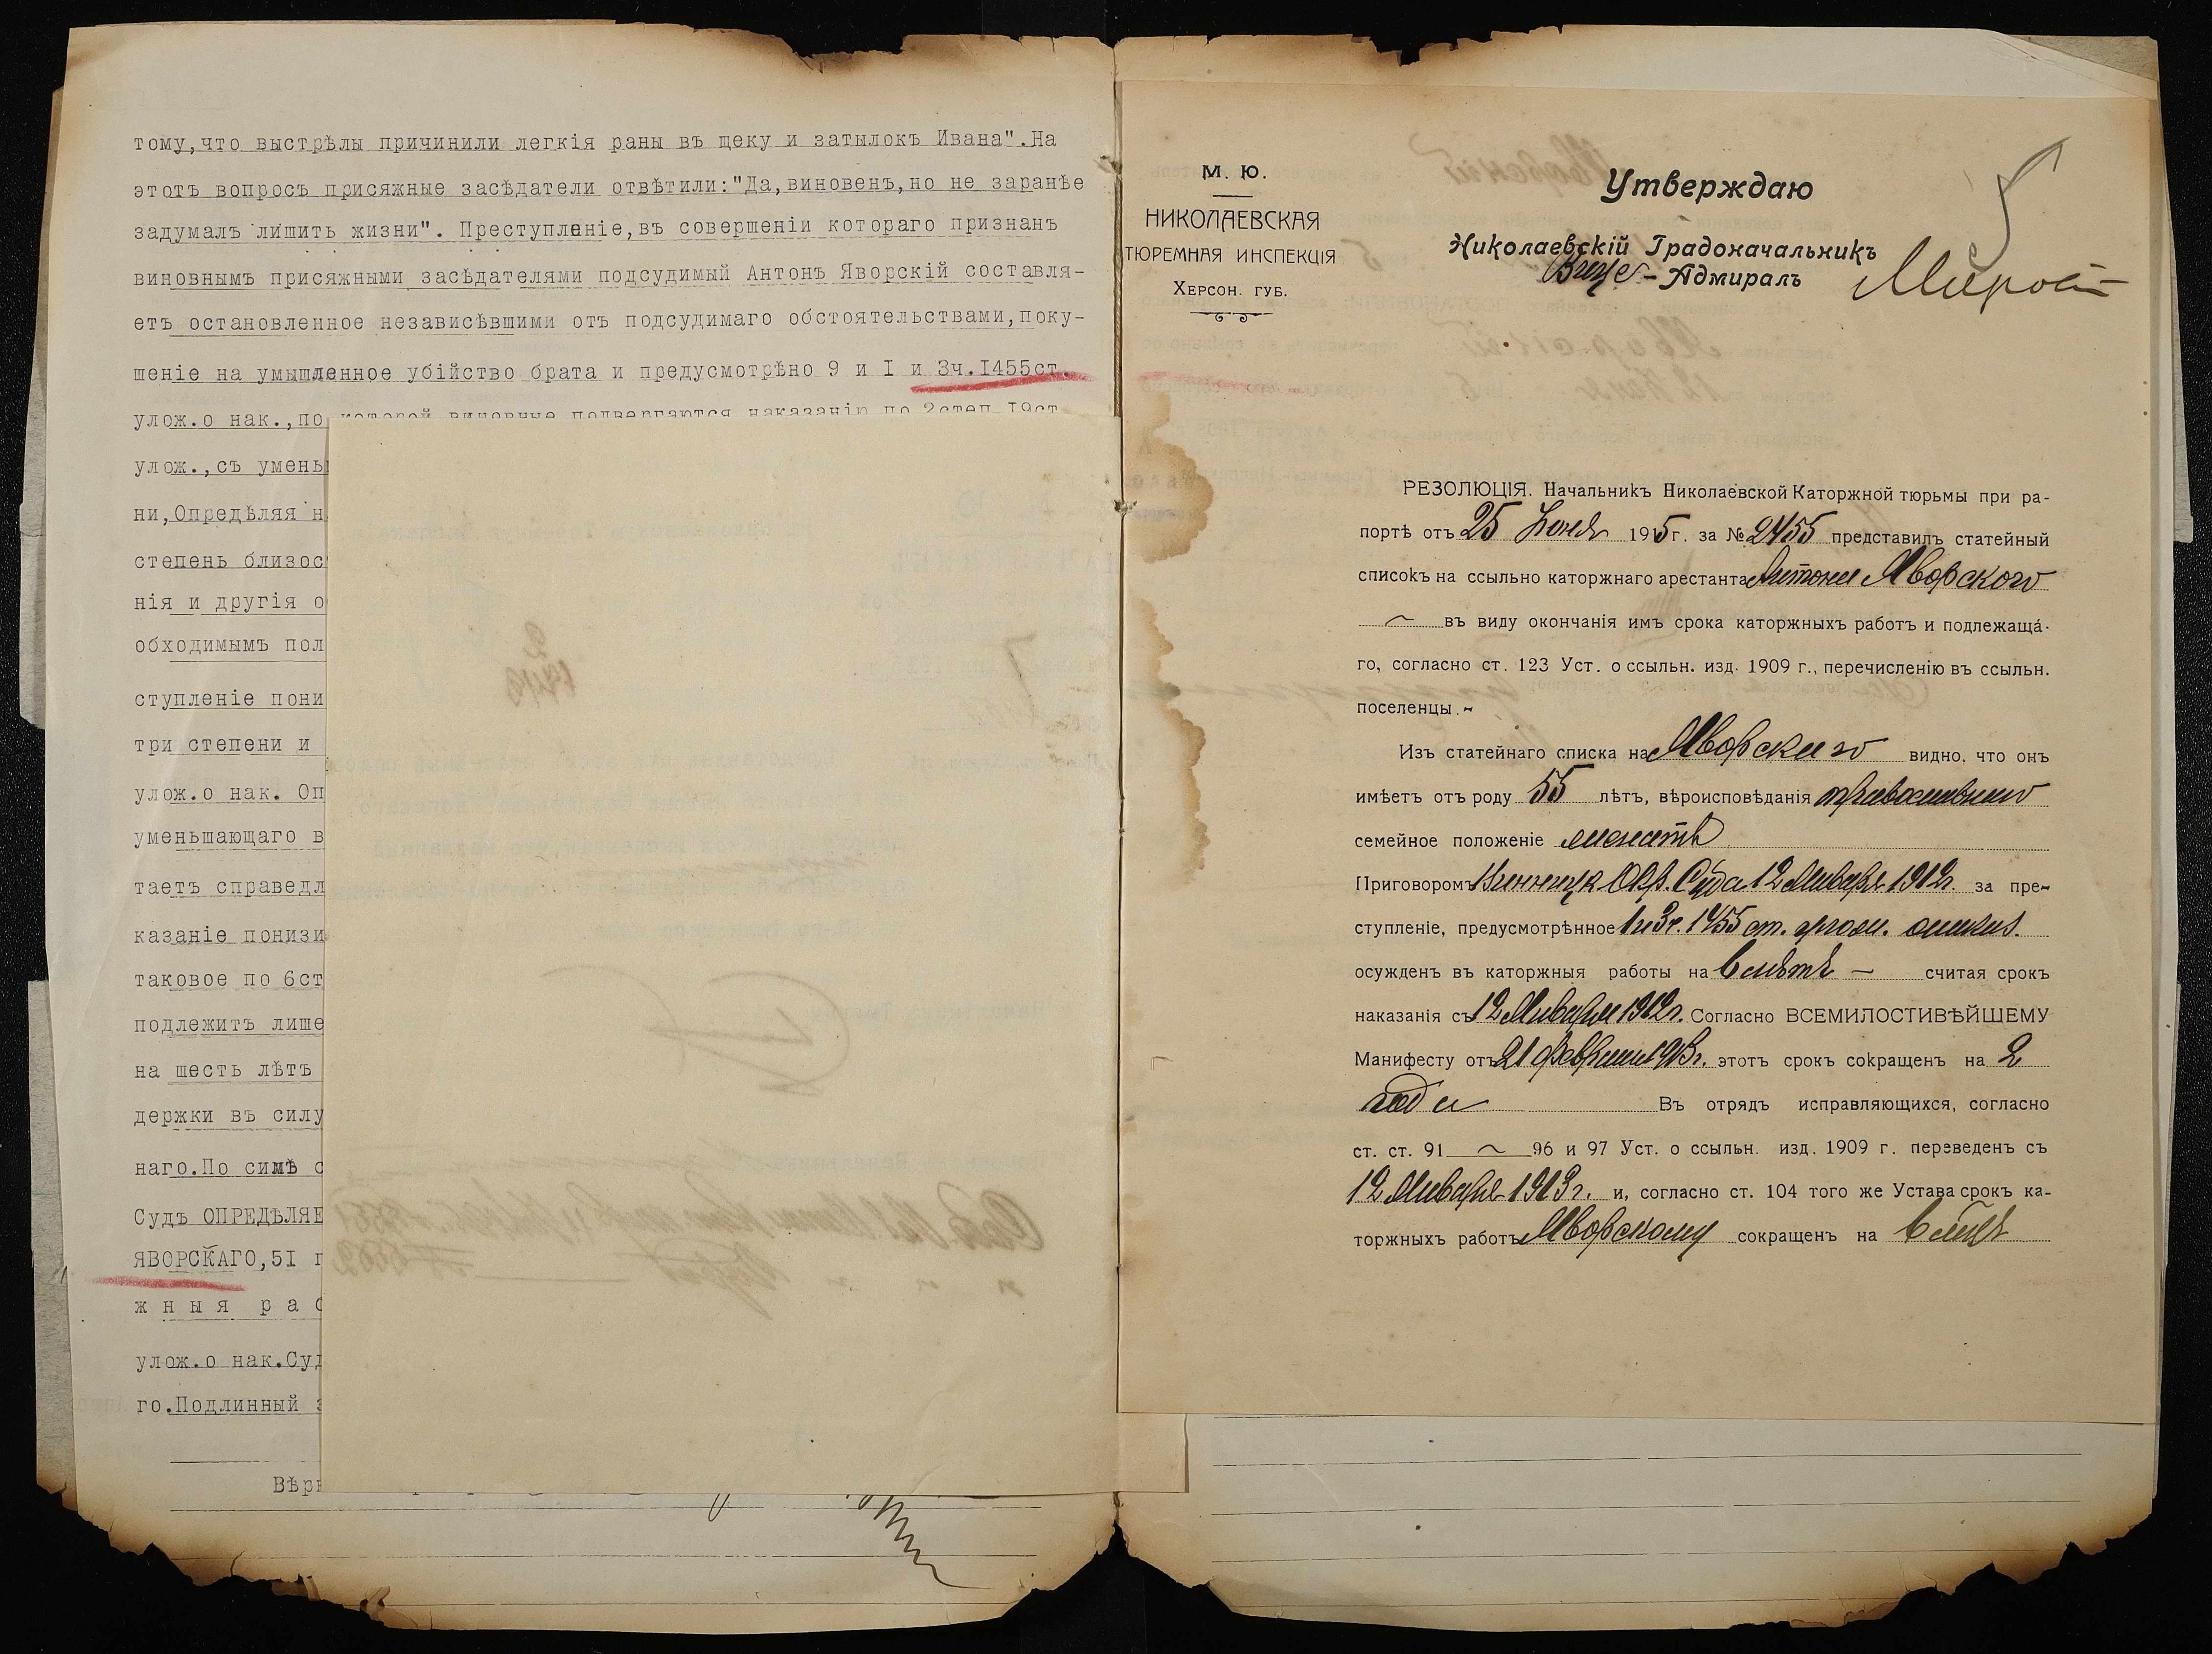 тому,что выстрѣлы причинили легкія раны въ щеку и затылокъ Ивана".На
этотъ вопросъ присяжные засѣдатели отвѣтили:"Да,виновенъ,но не заранѣе
задумалъ лишить жизни". Преступленіе,въ совершеніи котораго признанъ
виновнымъ присяжными засѣдателями подсудимый Антонъ Яворскій составля-
етъ остановленное независѣвшими отъ подсудимаго обстоятельствами,поку-
шеніе на умышленное убійство брата и предусмотрѣно 9 и I и 3ч.I455ст.
улож.о нак.,по которой виновные подвергаются наказанію по 2степ I9ст
улож.,съ умень
ни,Опредѣляя н
степень близос
нія и другія о
обходимымъ пол
ступленіе пони
три степени и
улож.о нак. Оп
уменьшающаго в
таетъ справедл
казаніе понизи
таковое по 6ст
подлежитъ лише
на шесть лѣтъ
держки въ силу
наго.По симъ с
Судъ ОПРЕДѢЛЯЕ
ЯВОРСКАГО,51 г
ж н ы я р а б
улож.о нак.Суд
го.Подлинный з
Вѣрн
М. Ю.
НИКОЛАЕВСКАЯ
ТЮРЕМНАЯ ИНСПЕКЦІЯ
Херсон. губ.
Утверждаю
Николаевскій Градоначальникъ
Вице-Адмиралъ
РЕЗОЛЮЦІЯ. Начальникъ Николаевской Каторжной тюрьмы при ра-
портѣ отъ 25 Іюня 1915 г. за № 2455 представилъ статейный
списокъ на ссыльно каторжнаго арестанта Антона Яворского
въ виду окончанія имъ срока каторжныхъ работъ и подлежаща-
го, согласно ст. 123 Уст. о ссыльн. изд. 1909 г., перечисленію въ ссыльн.
поселенцы.
Изъ статейнаго списка на Яворскаго видно, что онъ
имѣетъ отъ роду 55 лѣтъ, вѣроисповѣданія православнаго
семейное положеніе женатъ
Приговоромъ Винниц Окр. Суда 12 Января 1912г. за пре-
ступленіе, предусмотрѣнное 1 и 3ч. 1455 ст. улож. о наказ.
осужденъ въ каторжныя работы на 6 лѣтъ — считая срокъ
наказанія съ 12 Января 1912г. Согласно ВСЕМИЛОСТИВѢЙШЕМУ
Манифесту отъ 21 февраля 1913г. этотъ срокъ сокращенъ на 2
года Въ отрядъ исправляющихся, согласно
ст. ст. 91 ~ 96 и 97 Уст. о ссыльн. изд. 1909 г. переведенъ съ
12 Января 1913г. и, согласно ст. 104 того же Устава срокъ ка-
торжныхъ работъ Яворскому сокращенъ на 6 мѣс